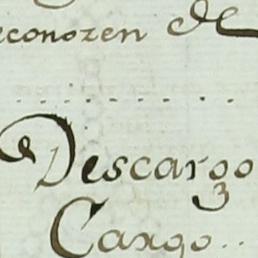 econozen de
Descargo
Cargo..